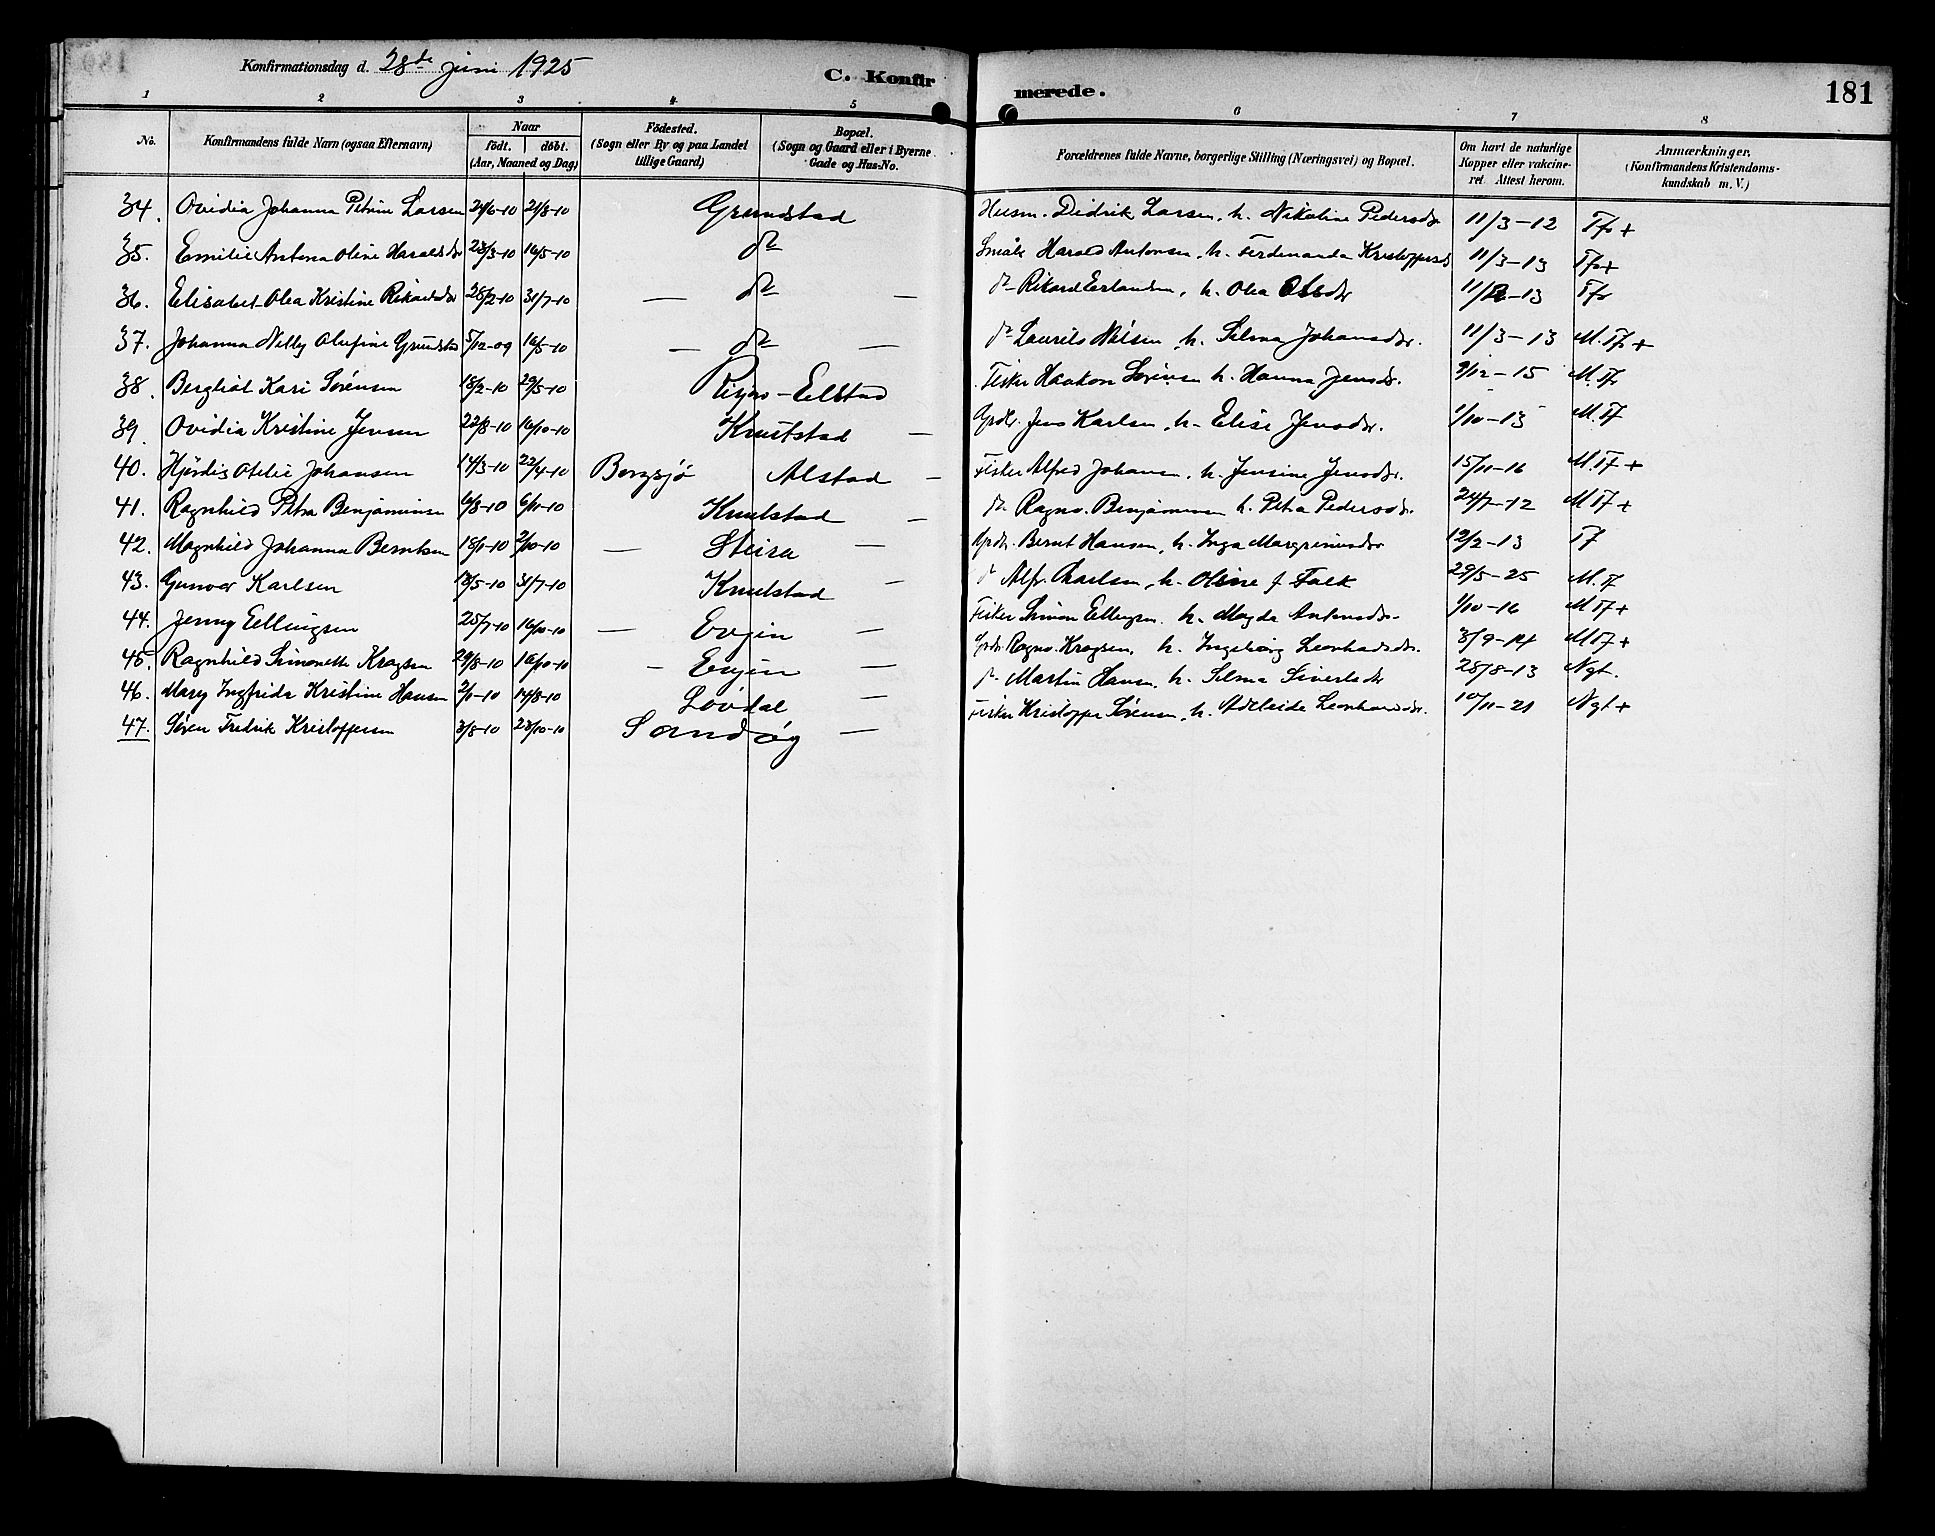 Konfirmationsdag d. 28de juni 1925
C. Konfir merede. 181
1 2 3 4 5 6 7 8
No. Konfirmandens fulde Navn (ogsaa Efternavn) Naar födt. döbt. (Aar, Maaned og Dag) Födested. (Sogn eller By og paa Landet tillige Gaard) Bopæl. (Sogn og Gaard eller i Byerne Gade og Hus-No. Forældrenes fulde Navne, borgerlige Stilling (Næringsvei) og Bopæl. Om havt de naturlige Kopper eller vakcineret. Attest herom. Anmærkninger, (Konfirmandens Kristendomskundskab m. V.)
34. Ovidia Johanna Petrine Larsen 24/6-10 21/8-10 Grundstad Husm. Didrik Larsen, h. Nikoline Pedersdr 11/3-12 Tfr +
35. Emilie Antona Oline Haraldsdr 23/3-10 16/5-10 do Harald Antonsen, h. Ferdinanda 11/3-13 Tfr+
36. Elisabet Olea Kristine Rikardsdr 28/2-10 31/7-10 — do — do Rikard Erlandsen, h. Olea Olsdr -13 Tfr
37. Johanna Nelly Olufine Grundstad 5/12-09 16/5-10 — do — do Laurits Nilsen, h. Selma Johansdr. 11/3-13 M. Tfr +
38. Bergliot Kari Sørensen 18/2-10 29/5-10 Fisker Haakon Sørensen h. Hanna Jensdr. 9/12-15 M. Tfr
39. Ovidia Kristine Jensen 22/8-10 16/10-10 Knutstad — Gpdr. Jens Karlsen, h. Elise Jensdr. 1/10-13 M. Tf
40. Hjørdis Otelie Johansen 14/3-10 22/4-10 Borgsjø Alstad — Fisker Alfred Johansen, h. Jensine Jensdr. 15/11-16 M. Tf +
41. Ragnhild Petra Benjaminsen 6/8-10 6/11-10 Knutstad — do Ragnv. Benjaminsen h. Petra Pedersdr. 24/7-12 M Tf +
42. Magnhild Johanna Berntsen 18/1-10 2/10-10 — Steira — Gpdr. Bernt Hansen, h. Inga Margreniusdr 12/2-13 Tf
43. Gunvor Karlsen 13/5-10 31/7-10 Knutstad — do Alfr. Karlsen, h. Oline f. Falk 29/5-25 M. Tf
44. Jenny Ellingsen 25/7-10 16/10-10 — Evjen — Fisker Simon Ellingsen. h. Magda Antonsdr. 1/10-16 M Tf +
45. Ragnhild Simonette Krogsen 29/8-10 16/10-10 — Evjen — Gpdr. Ragnv. Krogsen, h. Ingeborg Leonhardsdr. 3/9-14 M Tf +
46. Mary Ingfrida Kristine Hansen 2/1-10 14/8-10 Løvdal — do Martin Hansen, h. Selma Sivertsdr 28/8-13 Ngt.
47. Søren Fredrik Kristoffersen 3/8-10 23/10-10 Sandøy — Fisker Kristoffer Sørensen, h. Adelaide Leonhardsdr. 10/11-21 Ngt +